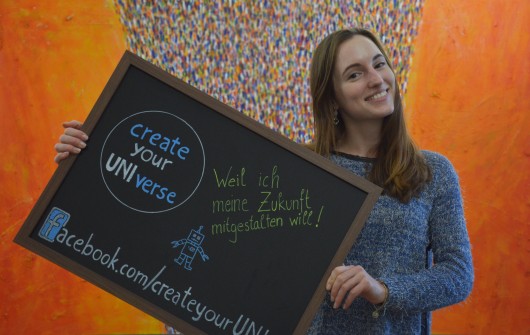 create
your
UNIverse
Weil ich
meine Zukunft
mitgestalten will!
facebook.com/createyourUNI